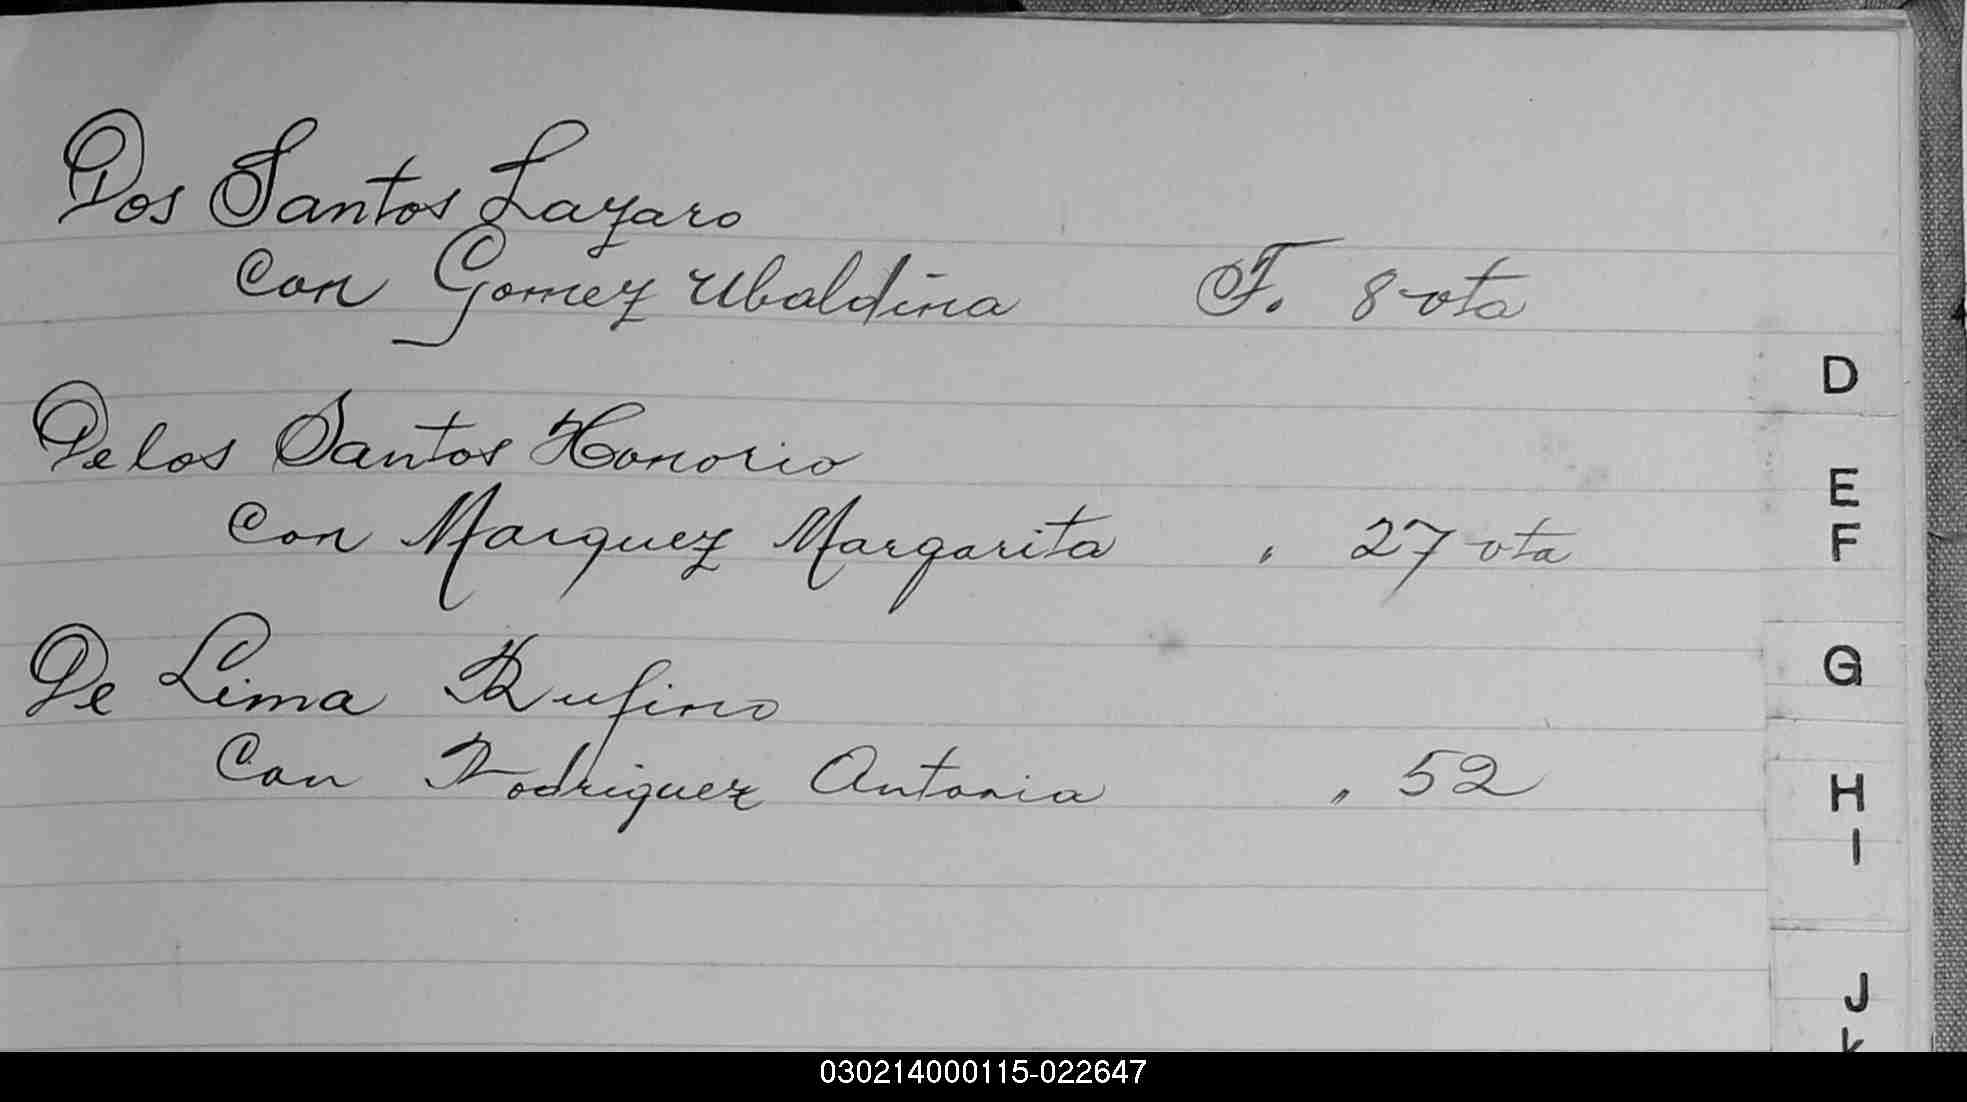 Dos Santos Lazaro
con Gomez Ubaldina F. 8 vta
De los Santos Honorio
con Marquez Margarita " 27 vta
De Lima Rufino
Con Rodriguez Antonia " 52
D
E
F
G
H
I
J
K
030214000115-022647